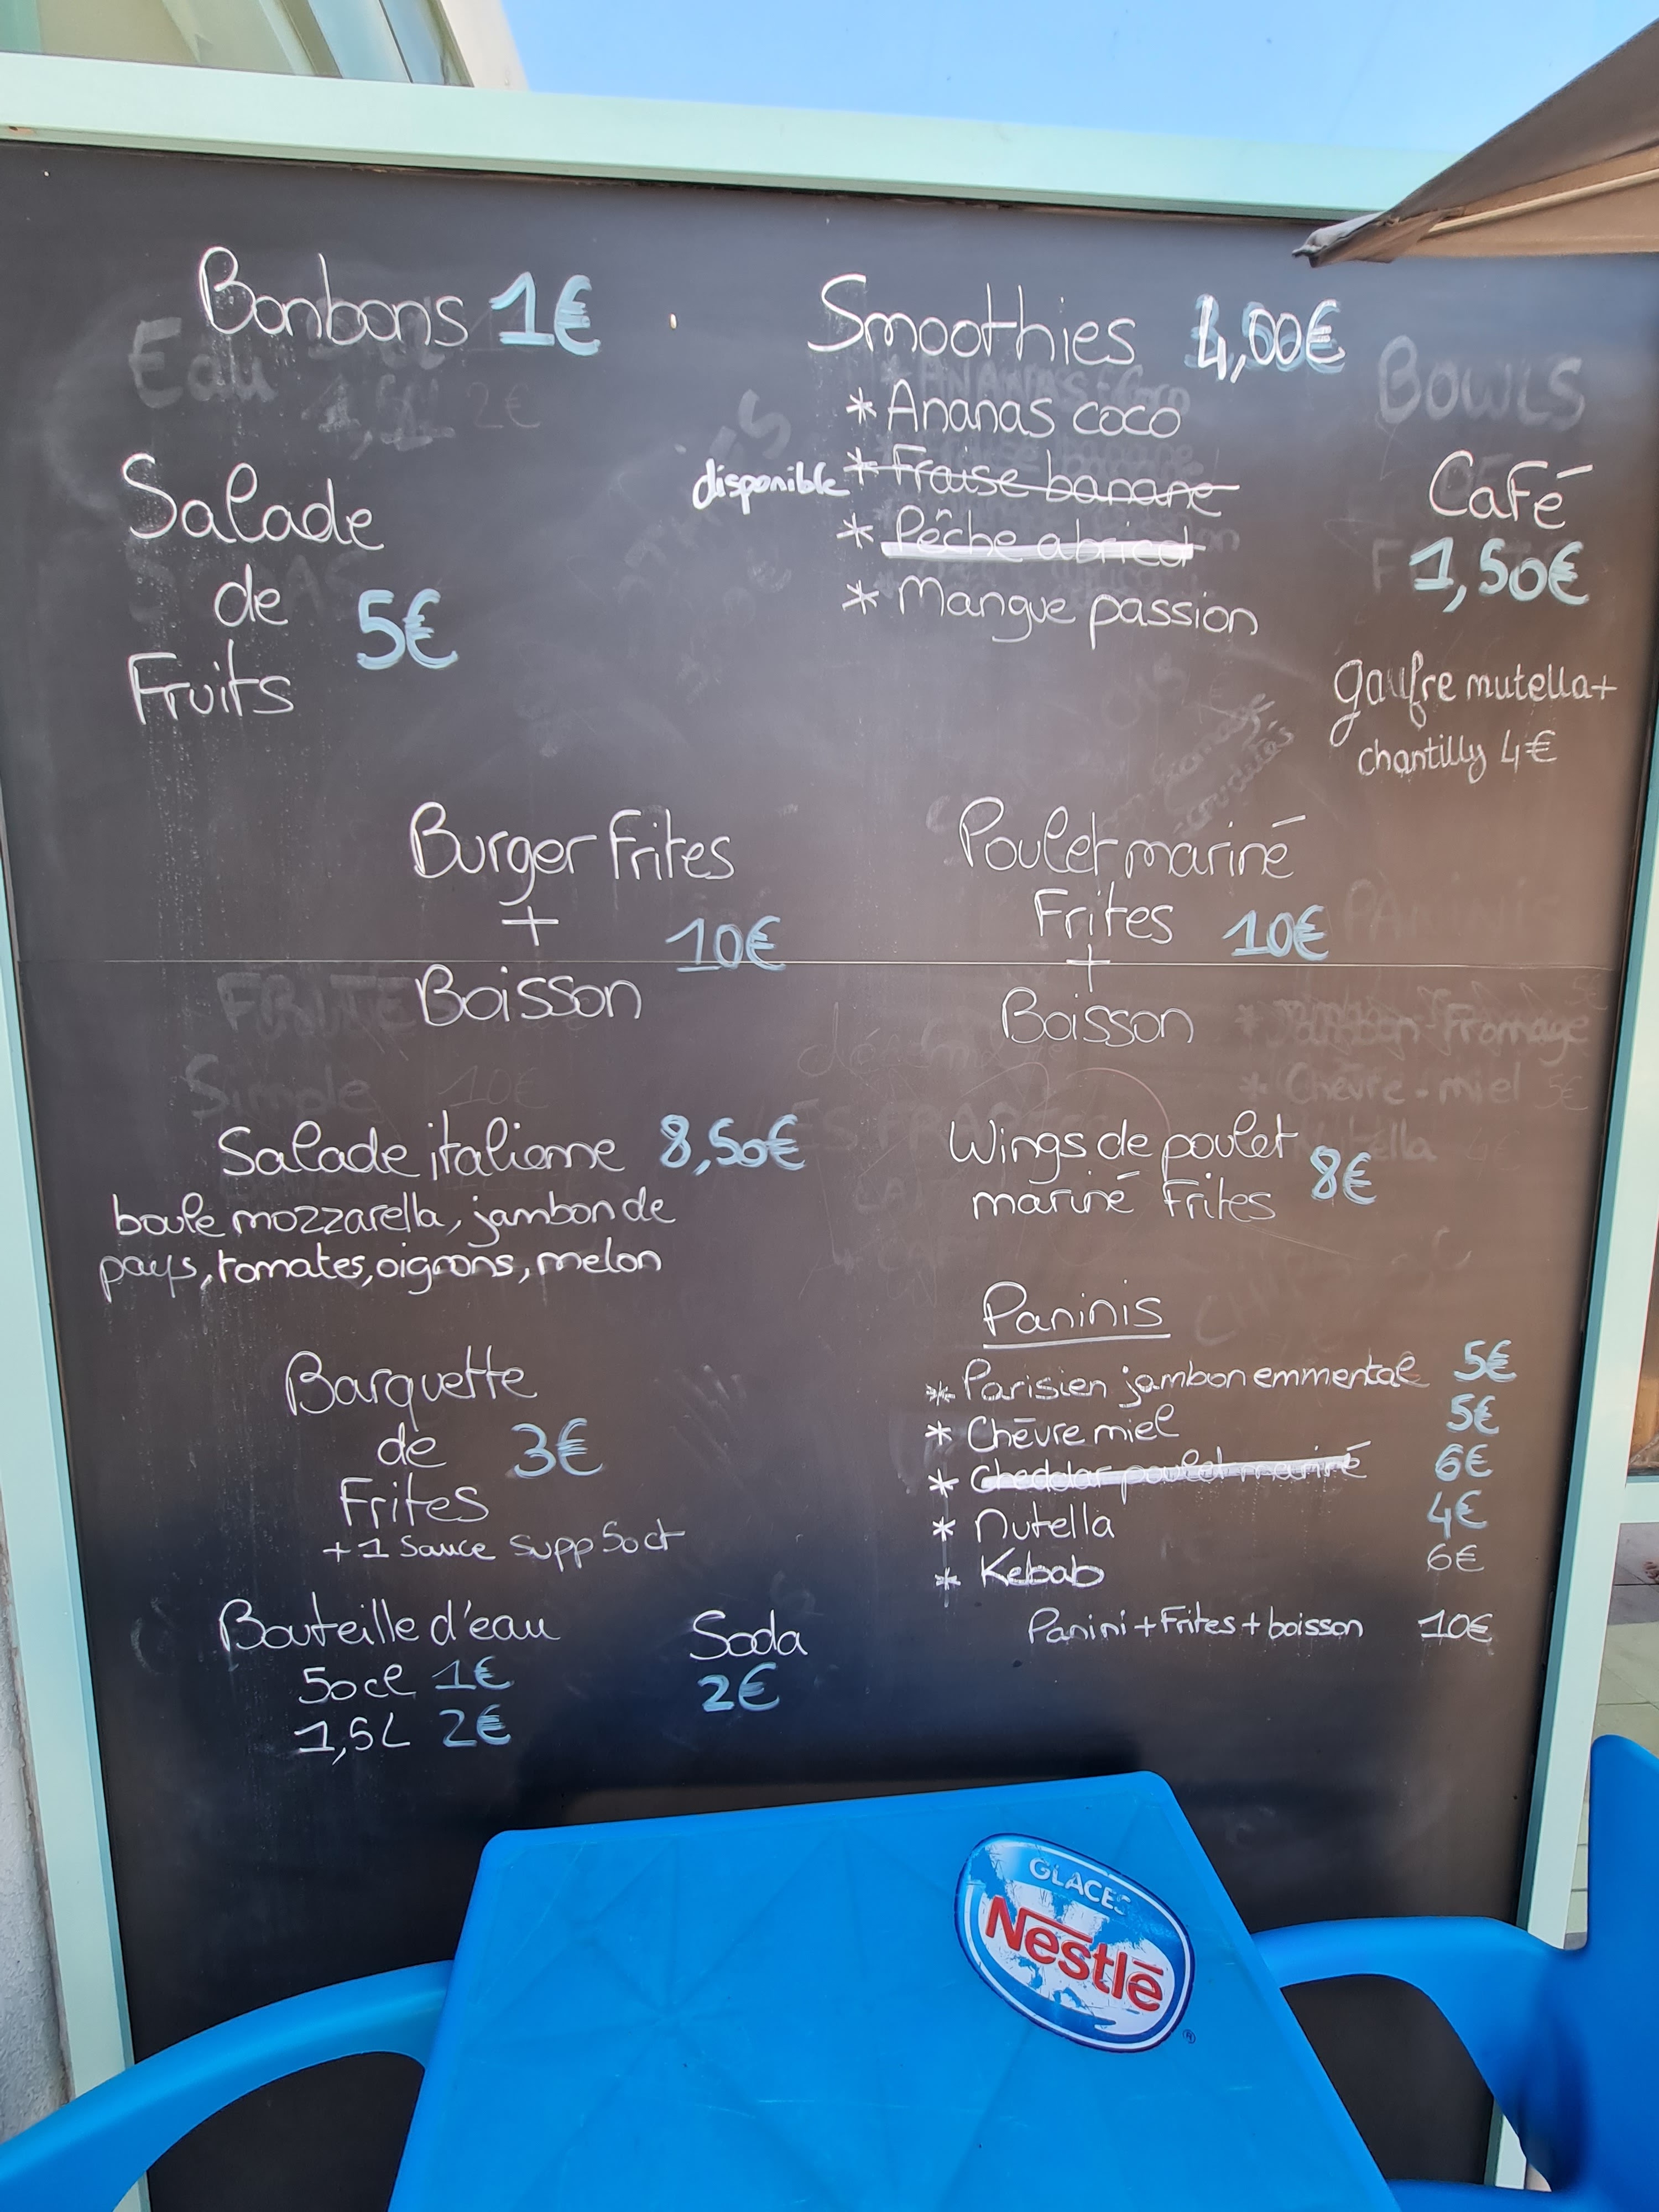 Bonbons 1€
Salade
de
Fruits 5€
Smoothies 4,00€
* Ananas coco
disponible * Fraise banane
* Pêche abricot
* Mangue passion
Café
1,50€
gaufre mutella+
chantilly 4€
Burger Frites
+ 10€
Boisson
Poulet mariné
Frites 10€
+
Boisson
Salade italienne 8,50€
boule mozzarella, jambon de
pays, tomates, oignons, melon
Wings de poulet
mariné Frites 8€
Barquette
de 3€
Frites
+ 1 Sauce Supp 50ct
Paninis
* Parisien jambon emmental 5€
* Chèvre miel 5€
* Cheddar poulet mariné 6€
* Nutella 4€
* Kebab 6€
Panini + Frites + boisson 10€
Bouteille d'eau
50cl 1€
1,5L 2€
Soda
2€
Eau
1,5L 2€
BOWLS
PANINIS
Jambon-Fromage
* Chèvre-miel 5€
Simple 10€
GLACES
Nestlé
®